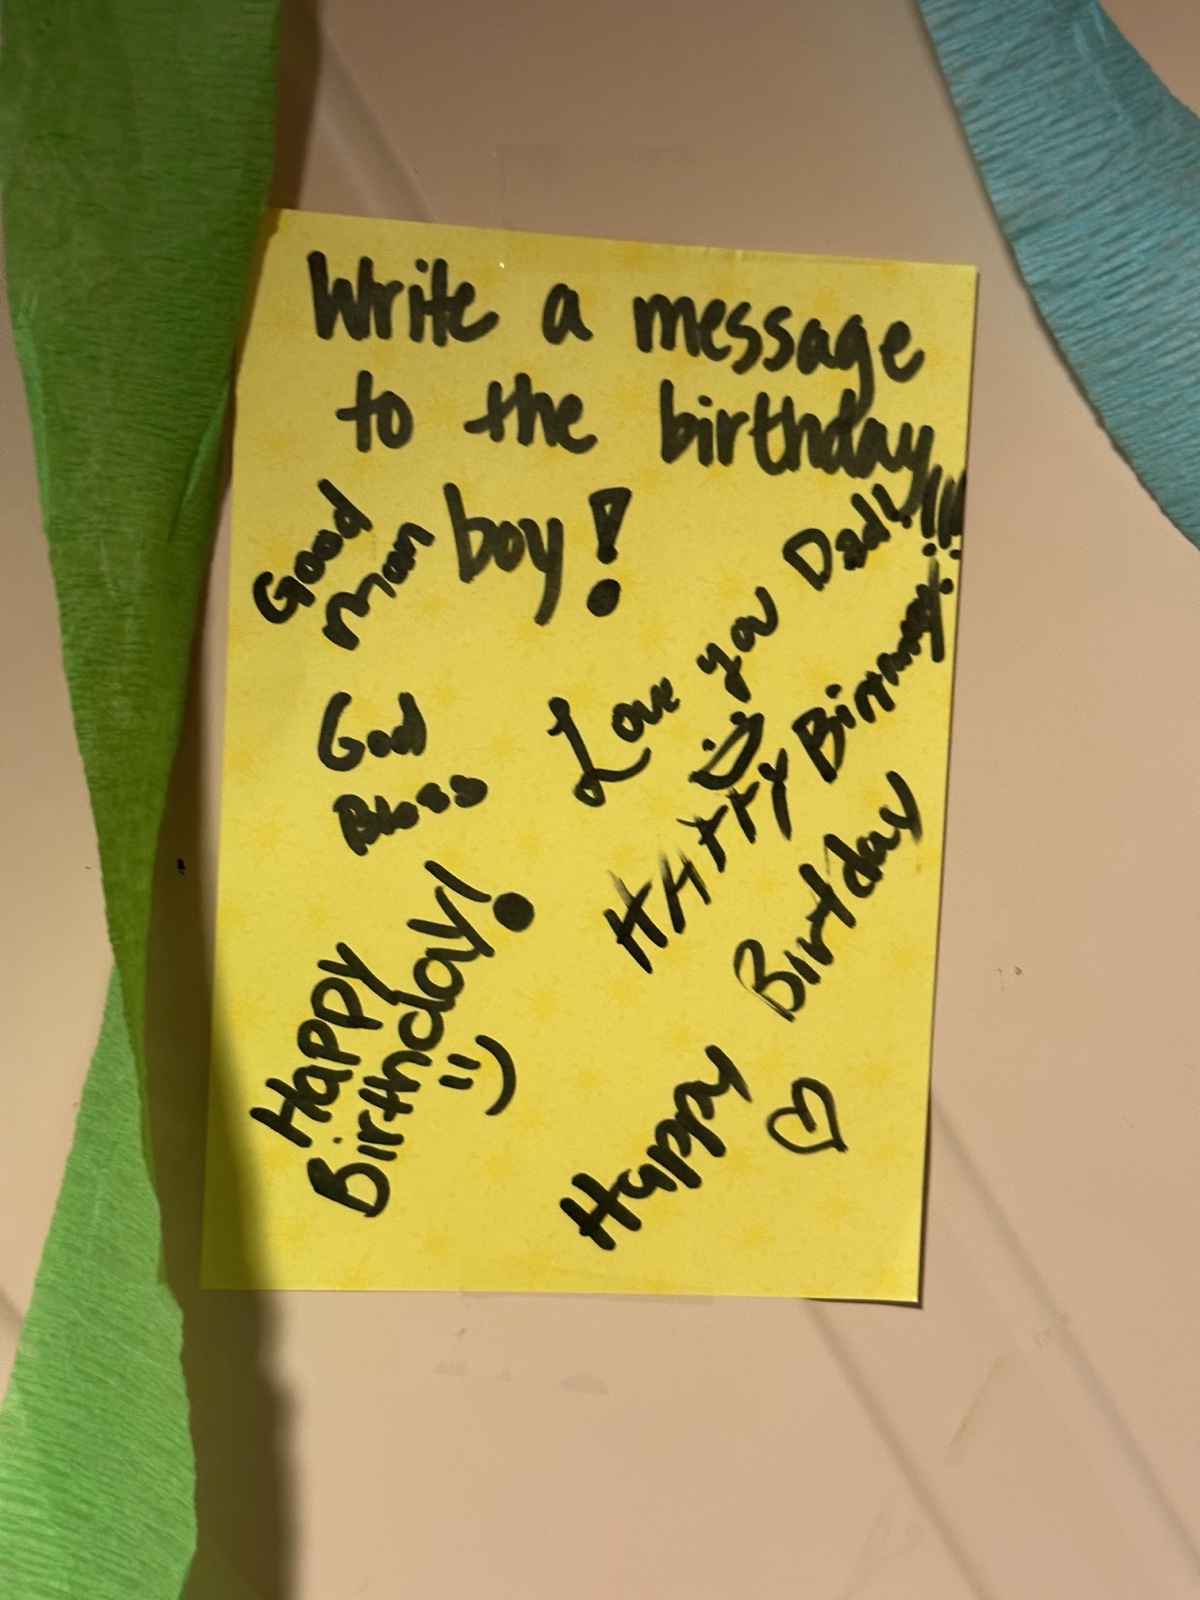 Write a message
to the birthday
boy!
Good
man
Love you Dad!!!!
God
Bless
HAPPY
Happy
Birthday!
Happy Birthday